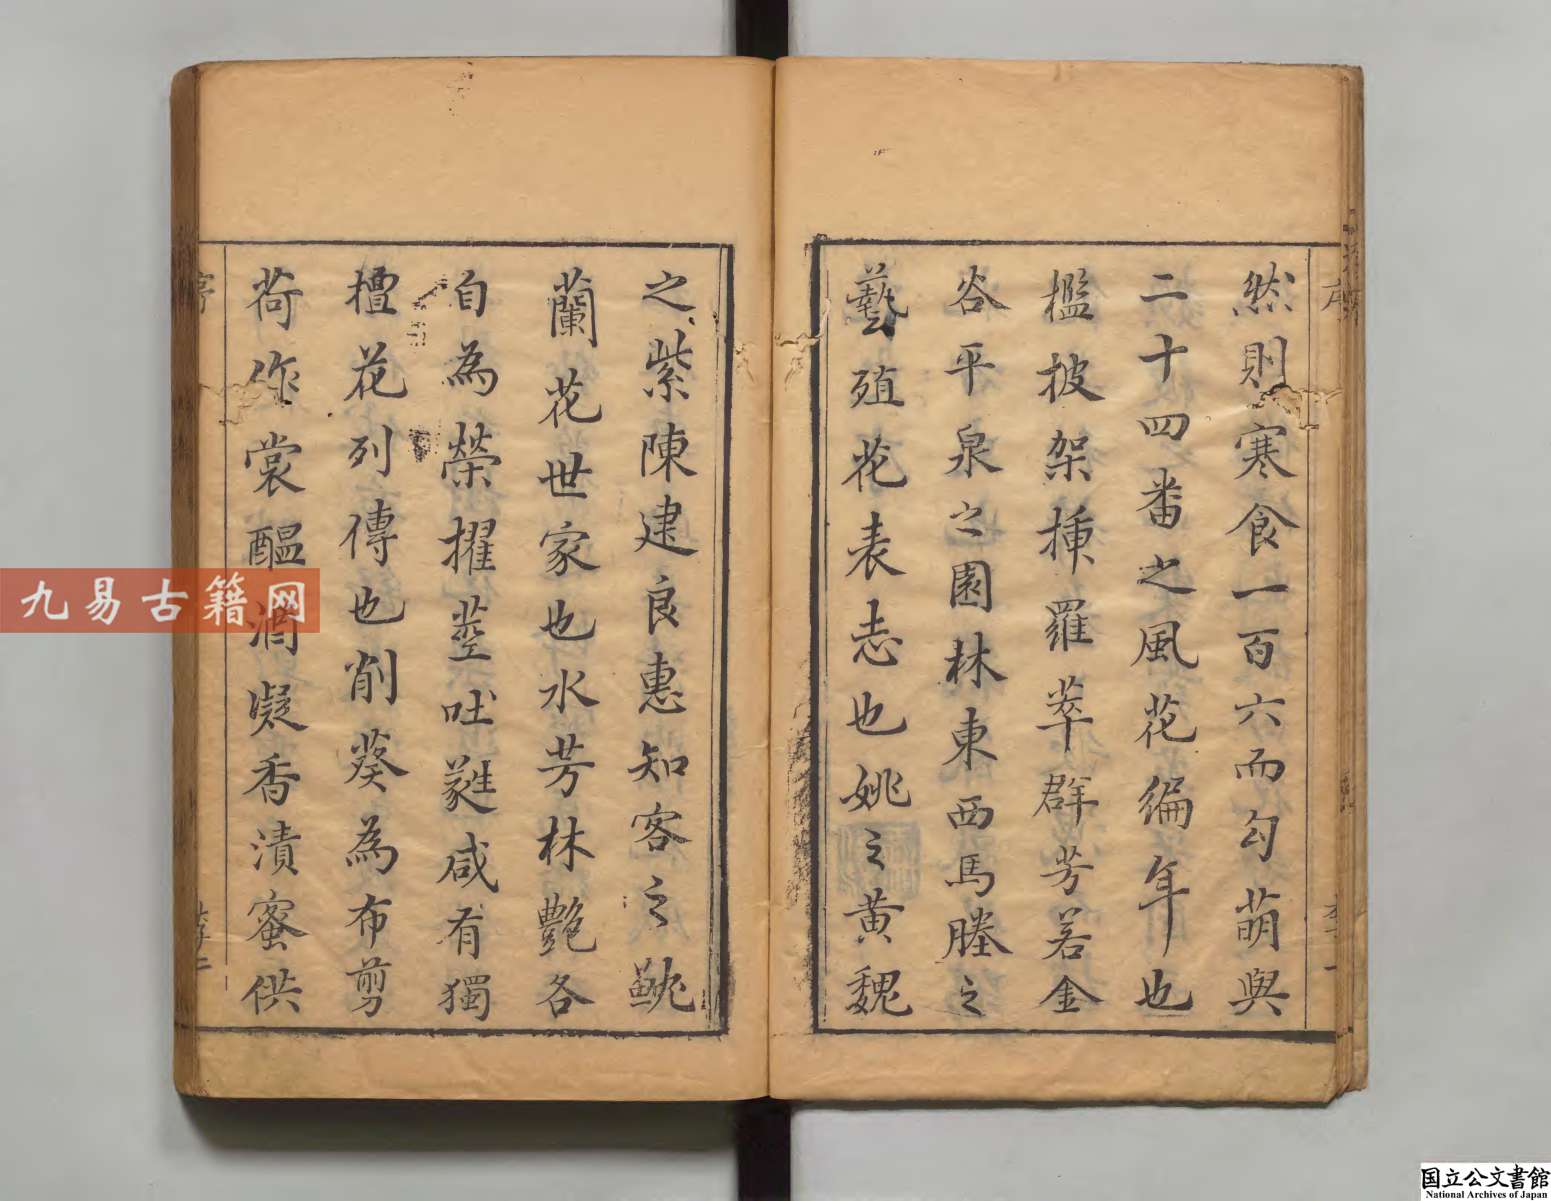 然則寒食一百六而勾萌與
二十四番之風花編年也
檻披架揷羅萃群芳若金
谷平泉之園林東西馬塍之
藝殖花表志也姚之黄魏
之紫陳建良惠知客之魫
蘭花世家也水芳林艶各
自為榮擢莖吐蕤咸有獨
檀花列傳也削葵為布剪
荷作裳醞酒凝香漬蜜供
序
九易古籍网
国立公文書館
National Archives of Japan